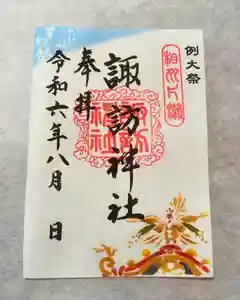 例大祭
奉拝
諏訪神社
令和六年八月 日